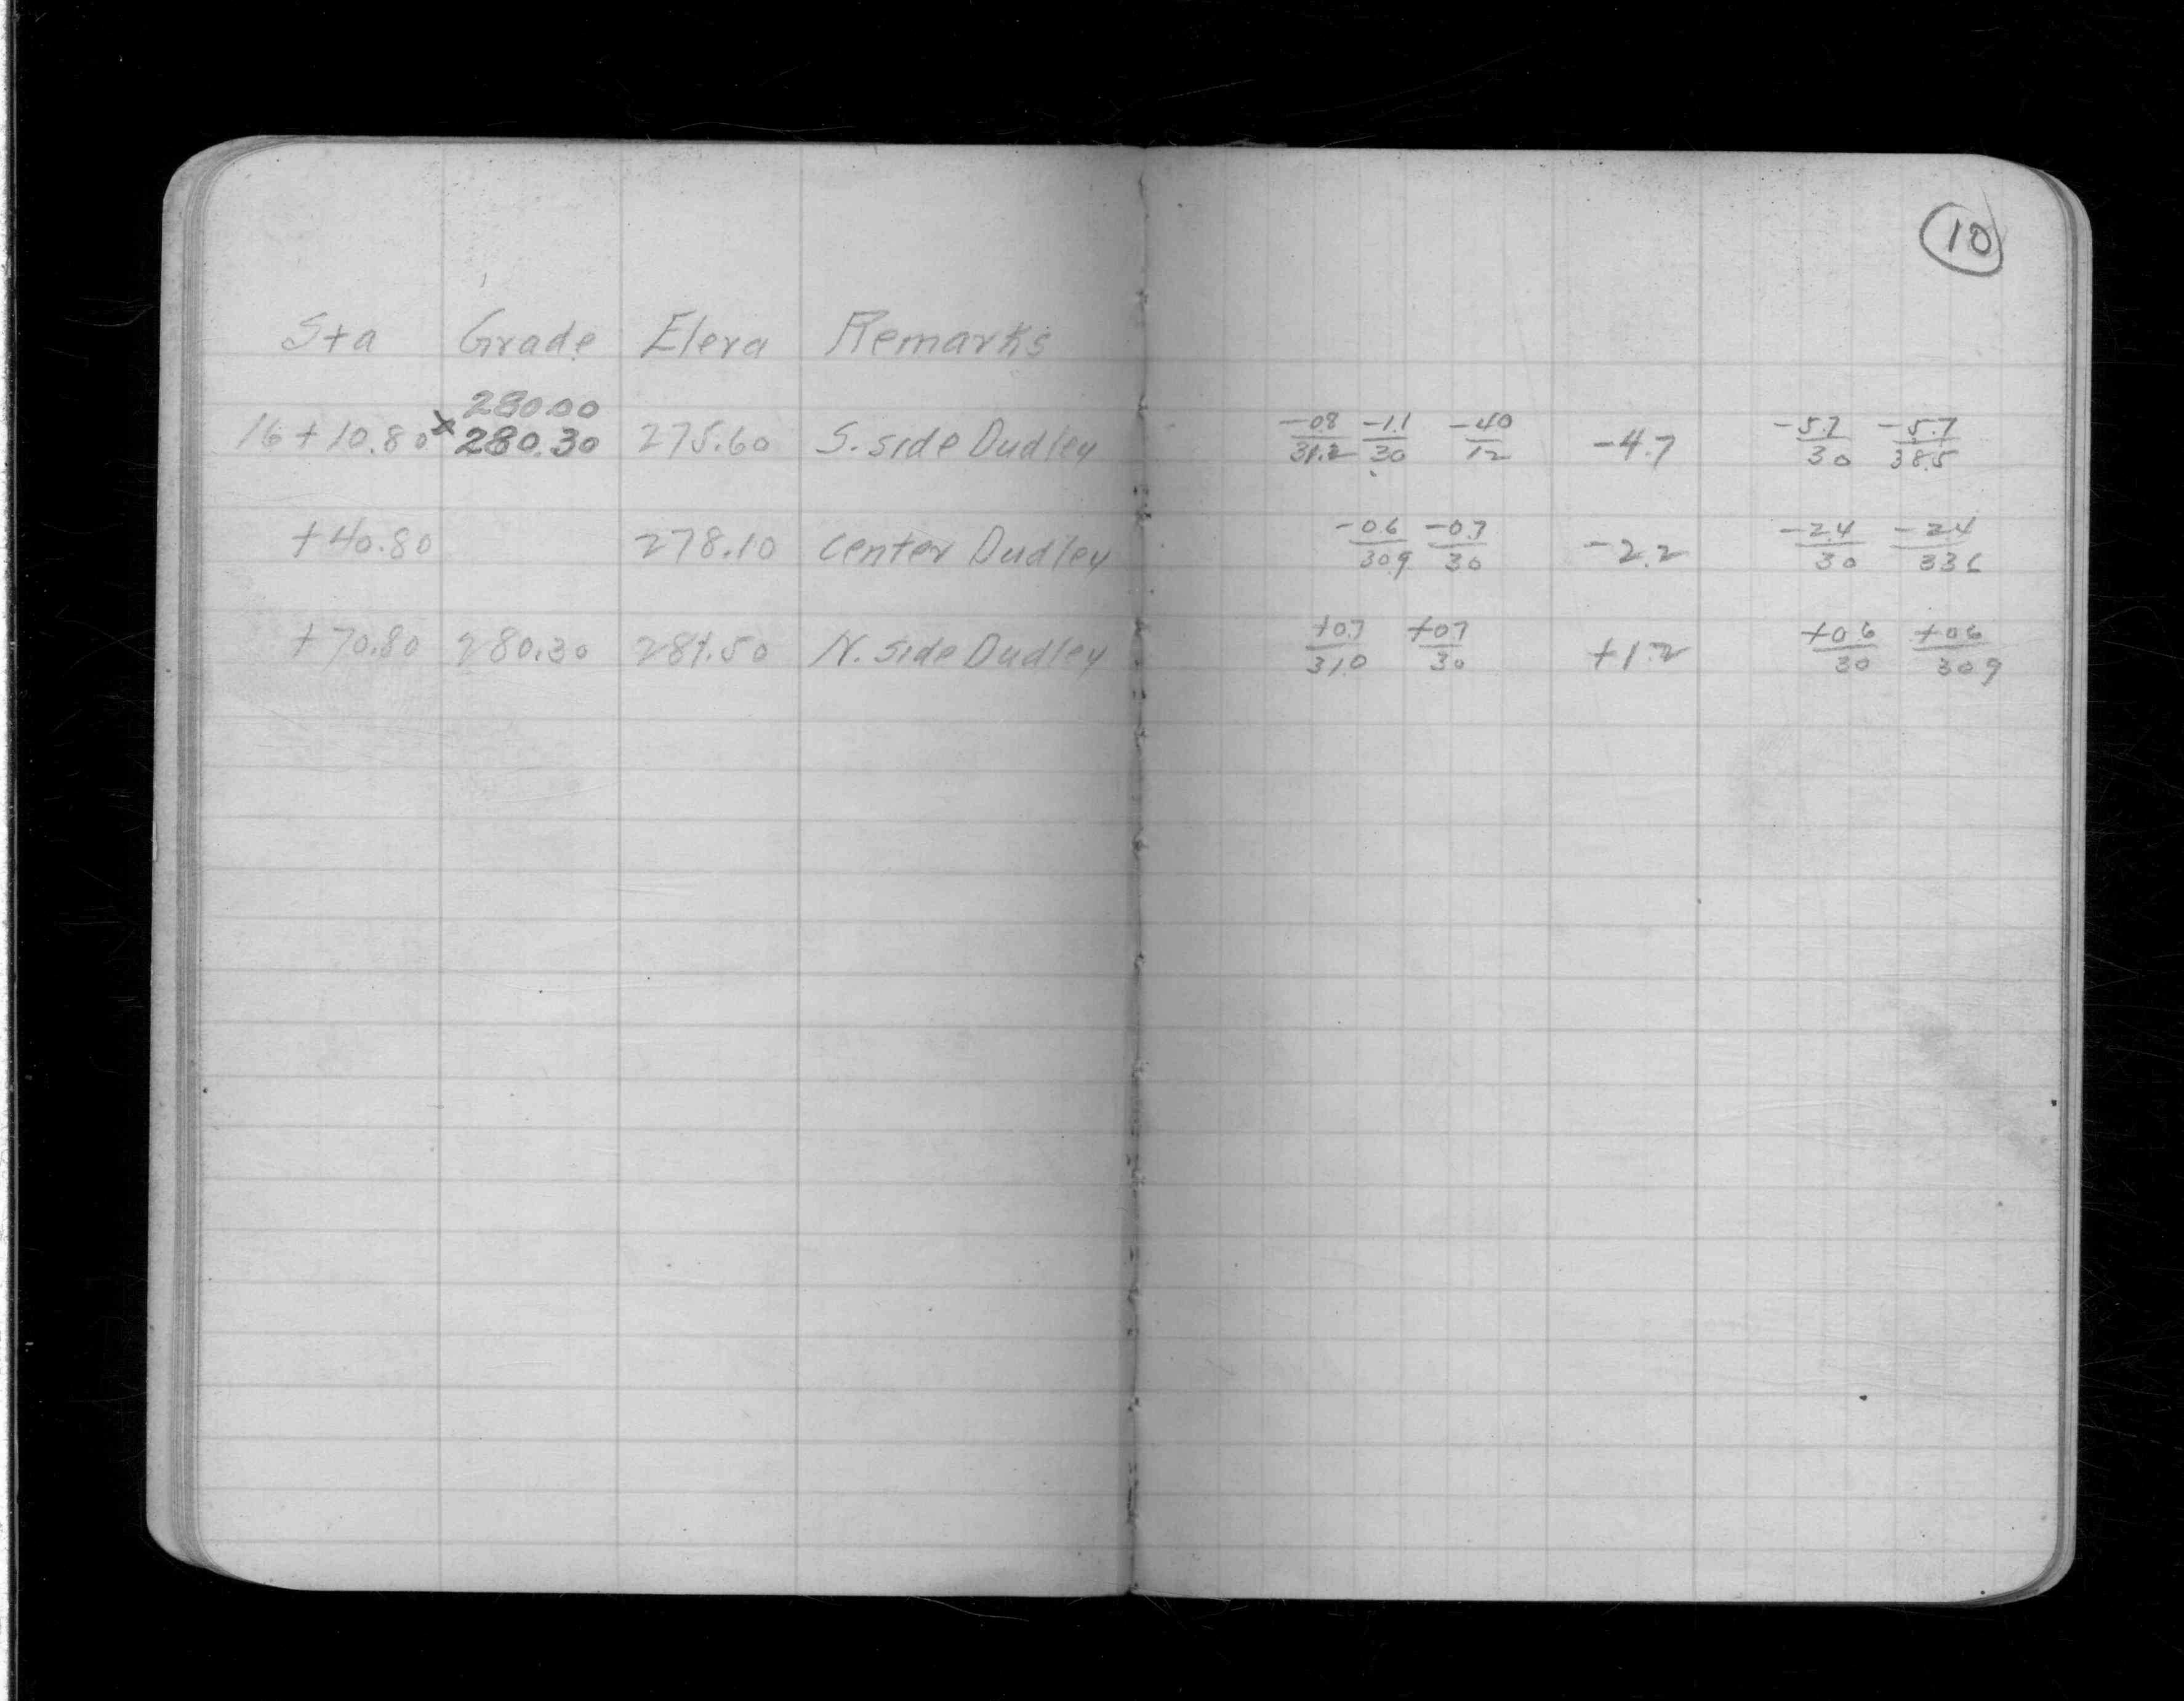 10
Sta Grade Eleva Remarks
280.00
16+10.80 x 280.30 275.60 S. side Dudley -0.8/31.2 -1.1/30 -4.0/12 -4.7 -5.7/30 -5.7/38.5
+40.80 278.10 Center Dudley -0.6/30.9 -0.7/30 -2.2 -2.4/30 -2.4/33.6
+70.80 280.30 281.50 N. side Dudley +0.7/31.0 +0.7/30 +1.2 +0.6/30 +0.6/30.9